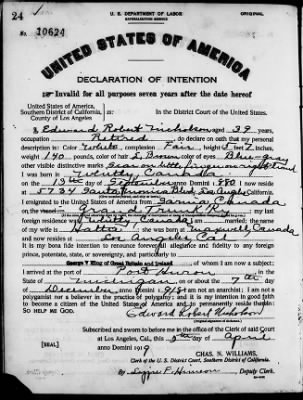 24
U. S. DEPARTMENT OF LABOR
NATURALIZATION SERVICE
ORIGINAL
No. 10624
UNITED STATES OF AMERICA
DECLARATION OF INTENTION
Invalid for all purposes seven years after the date hereof
United States of America,
Southern District of California,
County of Los Angeles
In the District Court of the United States.
I, Edward Robert Nicholson, aged 39 years,
occupation Retired, do declare on oath that my personal
description is: Color White, complexion Fair, height 5 feet 7 inches,
weight 140 pounds, color of hair L. Brown, color of eyes Blue-gray
other visible distinctive marks Scar on left
I was born in Canada
on the 13th day of September, anno Domini 1880; I now reside
at 5737 Santa Monica Blvd, Los Angeles, California.
I emigrated to the United States of America from Sarnia Canada
on the vessel Grand Trunk Ry; my last
foreign residence was Canada; I am married; the name
of my wife is Hattie; she was born at Maxwell, Canada
and now resides at Los Angeles Cal
It is my bona fide intention to renounce forever all allegiance and fidelity to any foreign
prince, potentate, state, or sovereignty, and particularly to
George V King of Great Britain and Ireland, of whom I am now a subject;
I arrived at the port of Port Huron, in the
State of Michigan, on or about the 7th day
of December, anno Domini 1918; I am not an anarchist; I am not a
polygamist nor a believer in the practice of polygamy; and it is my intention in good faith
to become a citizen of the United States of America and to permanently reside therein:
SO HELP ME GOD.
Edward Robert Nicholson
(Original signature of declarant.)
Subscribed and sworn to before me in the office of the Clerk of said Court
at Los Angeles, Cal., this day of April
anno Domini 1919
[SEAL]
CHAS. N. WILLIAMS,
Clerk of the U. S. District Court, Southern District of California.
By Deputy Clerk.